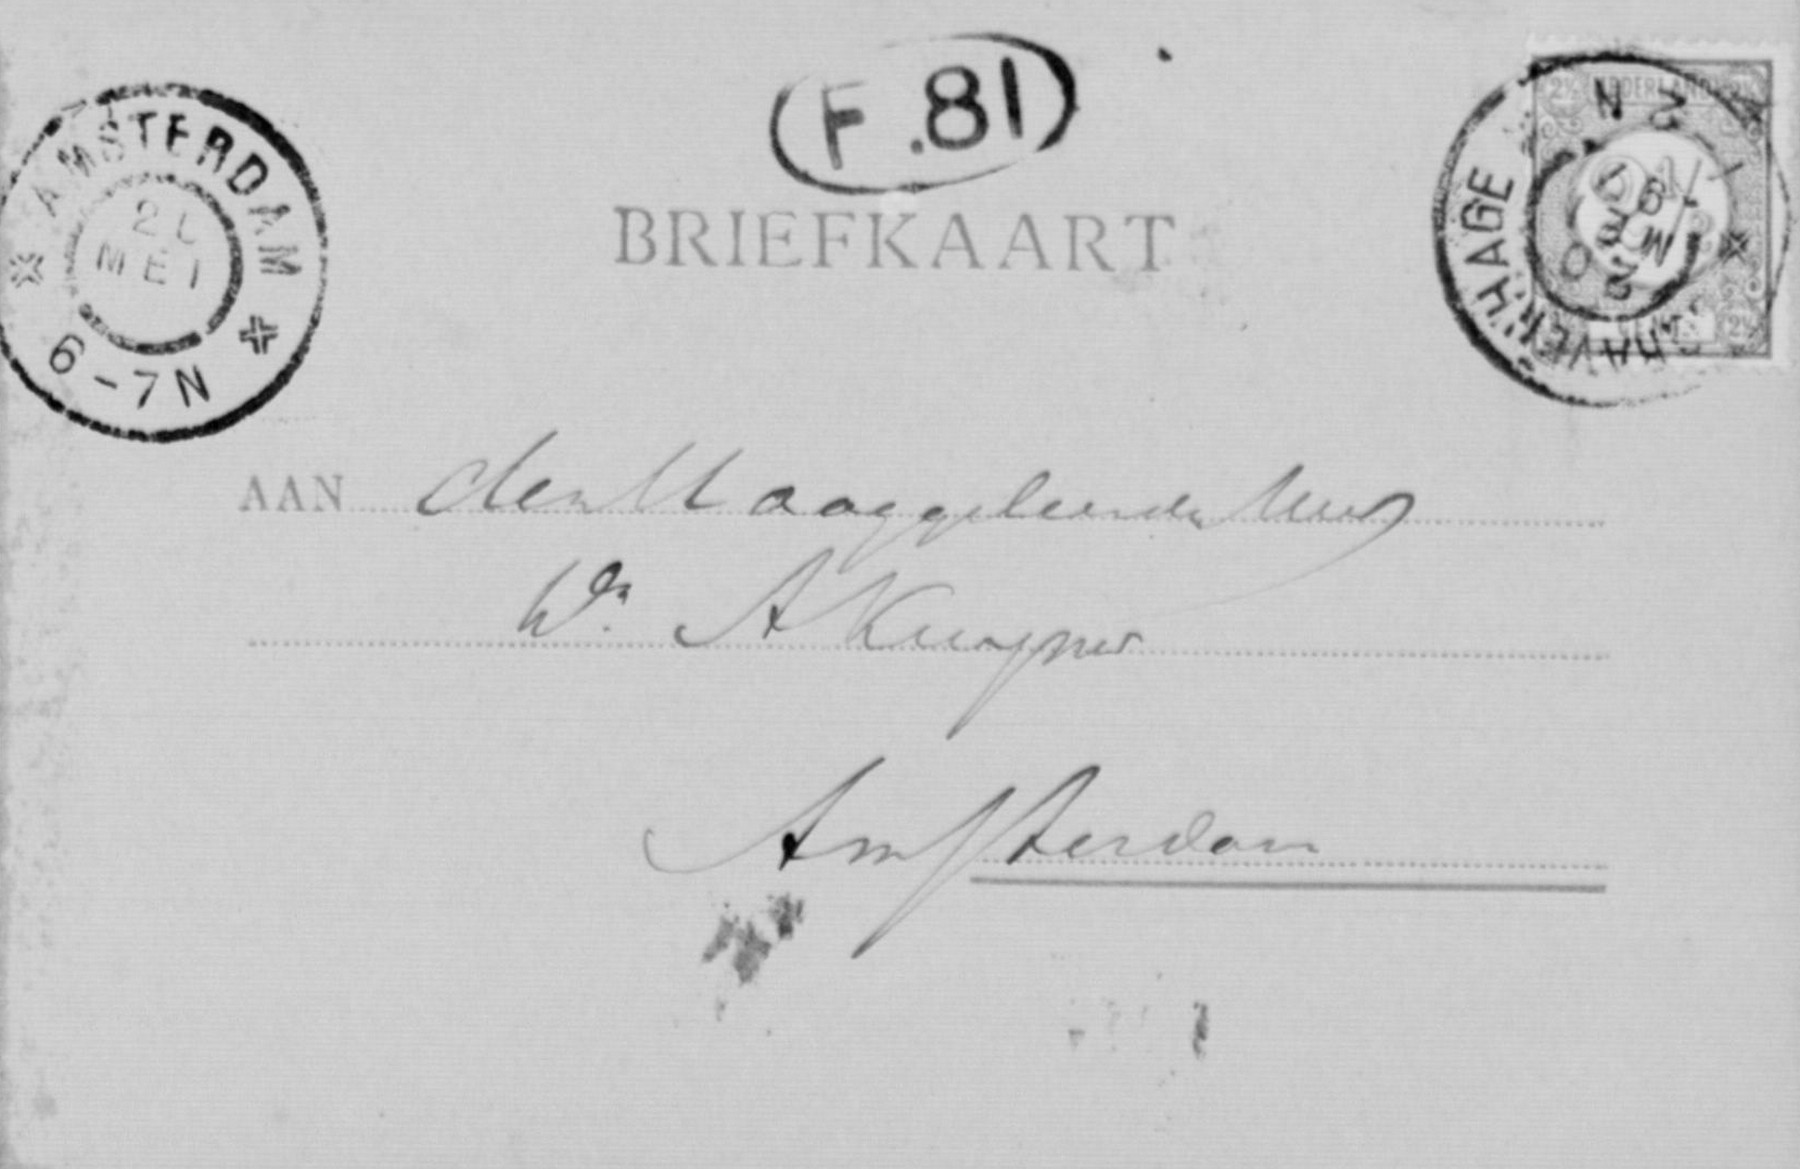 F.81
AMSTERDAM
MEI
6-7N
BRIEFKAART
NEDERLAND
'S GRAVENHAGE
AAN den Hooggeleerden Heer
Dr. A Kuyper
Amsterdam